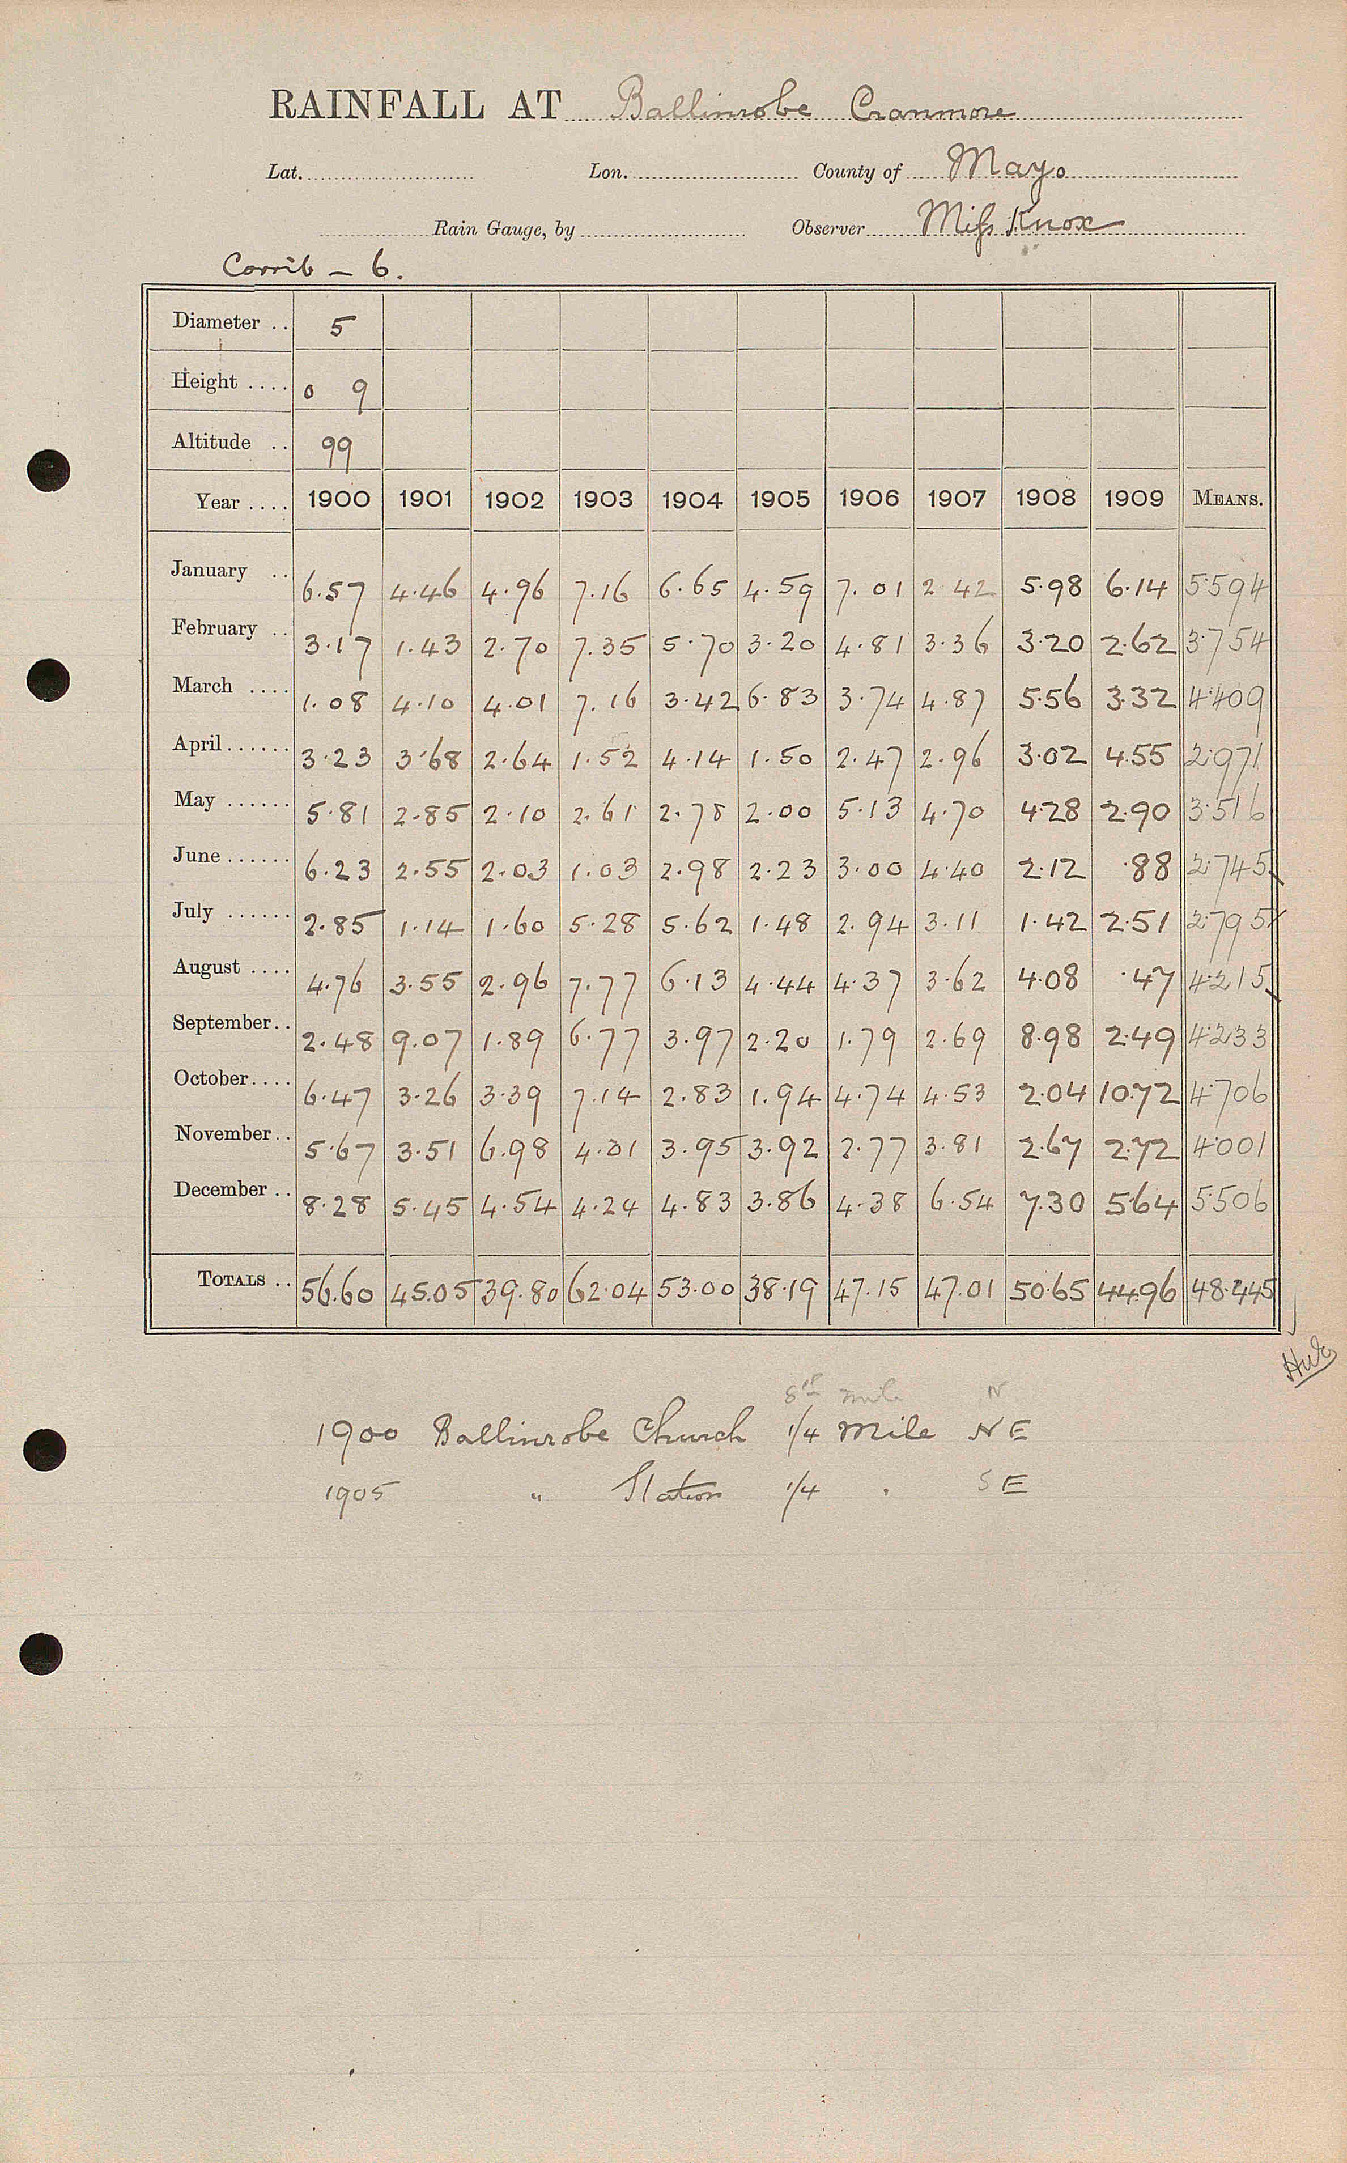 RAINFALL AT Ballinrobe Cranmore
Lat. Lon. County of Mayo
Rain Gauge, by Observer Miss Knox
Corrib - 6.
Diameter .. 5
Height .... 0 9
Altitude .. 99
Year .... 1900 1901 1902 1903 1904 1905 1906 1907 1908 1909 MEANS.
January .. 6.57 4.46 4.96 7.16 6.65 4.59 7.01 2.42 5.98 6.14 5.594
February .. 3.17 1.43 2.70 7.35 5.70 3.20 4.81 3.36 3.20 2.62 3.754
March .... 1.08 4.10 4.01 7.16 3.42 6.83 3.74 4.87 5.56 3.32 4.409
April...... 3.23 3.68 2.64 1.52 4.14 1.50 2.47 2.96 3.02 4.55 2.971
May ...... 5.81 2.85 2.10 2.61 2.78 2.00 5.13 4.70 4.28 2.90 3.516
June...... 6.23 2.55 2.03 1.03 2.98 2.23 3.00 4.40 2.12 .88 2.745
July ...... 2.85 1.14 1.60 5.28 5.62 1.48 2.94 3.11 1.42 2.51 2.795
August .... 4.76 3.55 2.96 7.77 6.13 4.44 4.37 3.62 4.08 .47 4.215
September.. 2.48 9.07 1.89 6.77 3.97 2.20 1.79 2.69 8.98 2.49 4.233
October.... 6.47 3.26 3.39 7.14 2.83 1.94 4.74 4.53 2.04 10.72 4.706
November.. 5.67 3.51 6.98 4.01 3.95 3.92 2.77 3.81 2.67 2.72 4.001
December .. 8.28 5.45 4.54 4.24 4.83 3.86 4.38 6.54 7.30 5.64 5.506
TOTALS .. 56.60 45.05 39.80 62.04 53.00 38.19 47.15 47.01 50.65 44.96 48.445
mile N
1900 Ballinrobe Church 1/4 Mile NE
1905 " Station 1/4 " SE